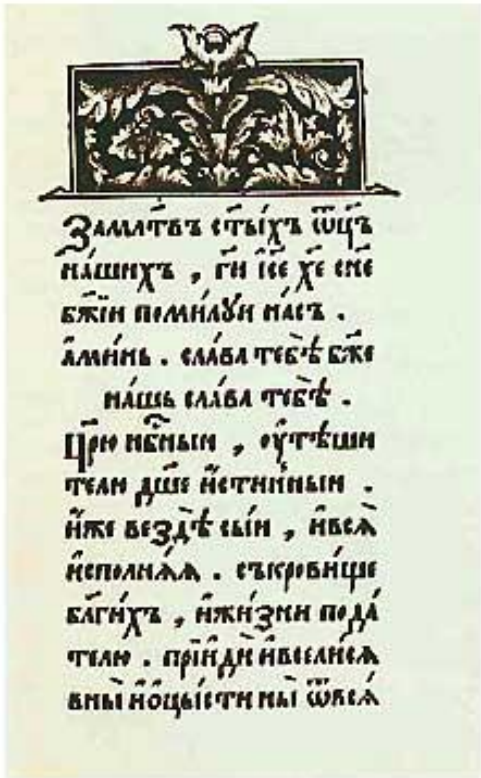 Замл҃твъ ст҃ы́хъ ѿц҃ъ
на́шихъ , гд҃и і҆с҃е хр҃е сн҃е
бж҃іи поми́лꙋи на́съ .
а҆ми́нь . сла́ва тебѣ̀ бж҃е
на́шь сла́ва тебѣ̀ .
Цр҃ю нб҃ныи , ᲂу҆тѣ́ши
телю дш҃е и҆́стинныи .
и҆́же вездѣ̀ сы́и , и҆всѧ̀
и҆сполнѧ́ѧ . съкро́вище
бл҃ги́хъ , и҆жи́зни пода́
телю . прїидѝ и҆всели́сѧ
вны̀ и҆ѡ҆цы́сти ны̀ ѿвсѧ́